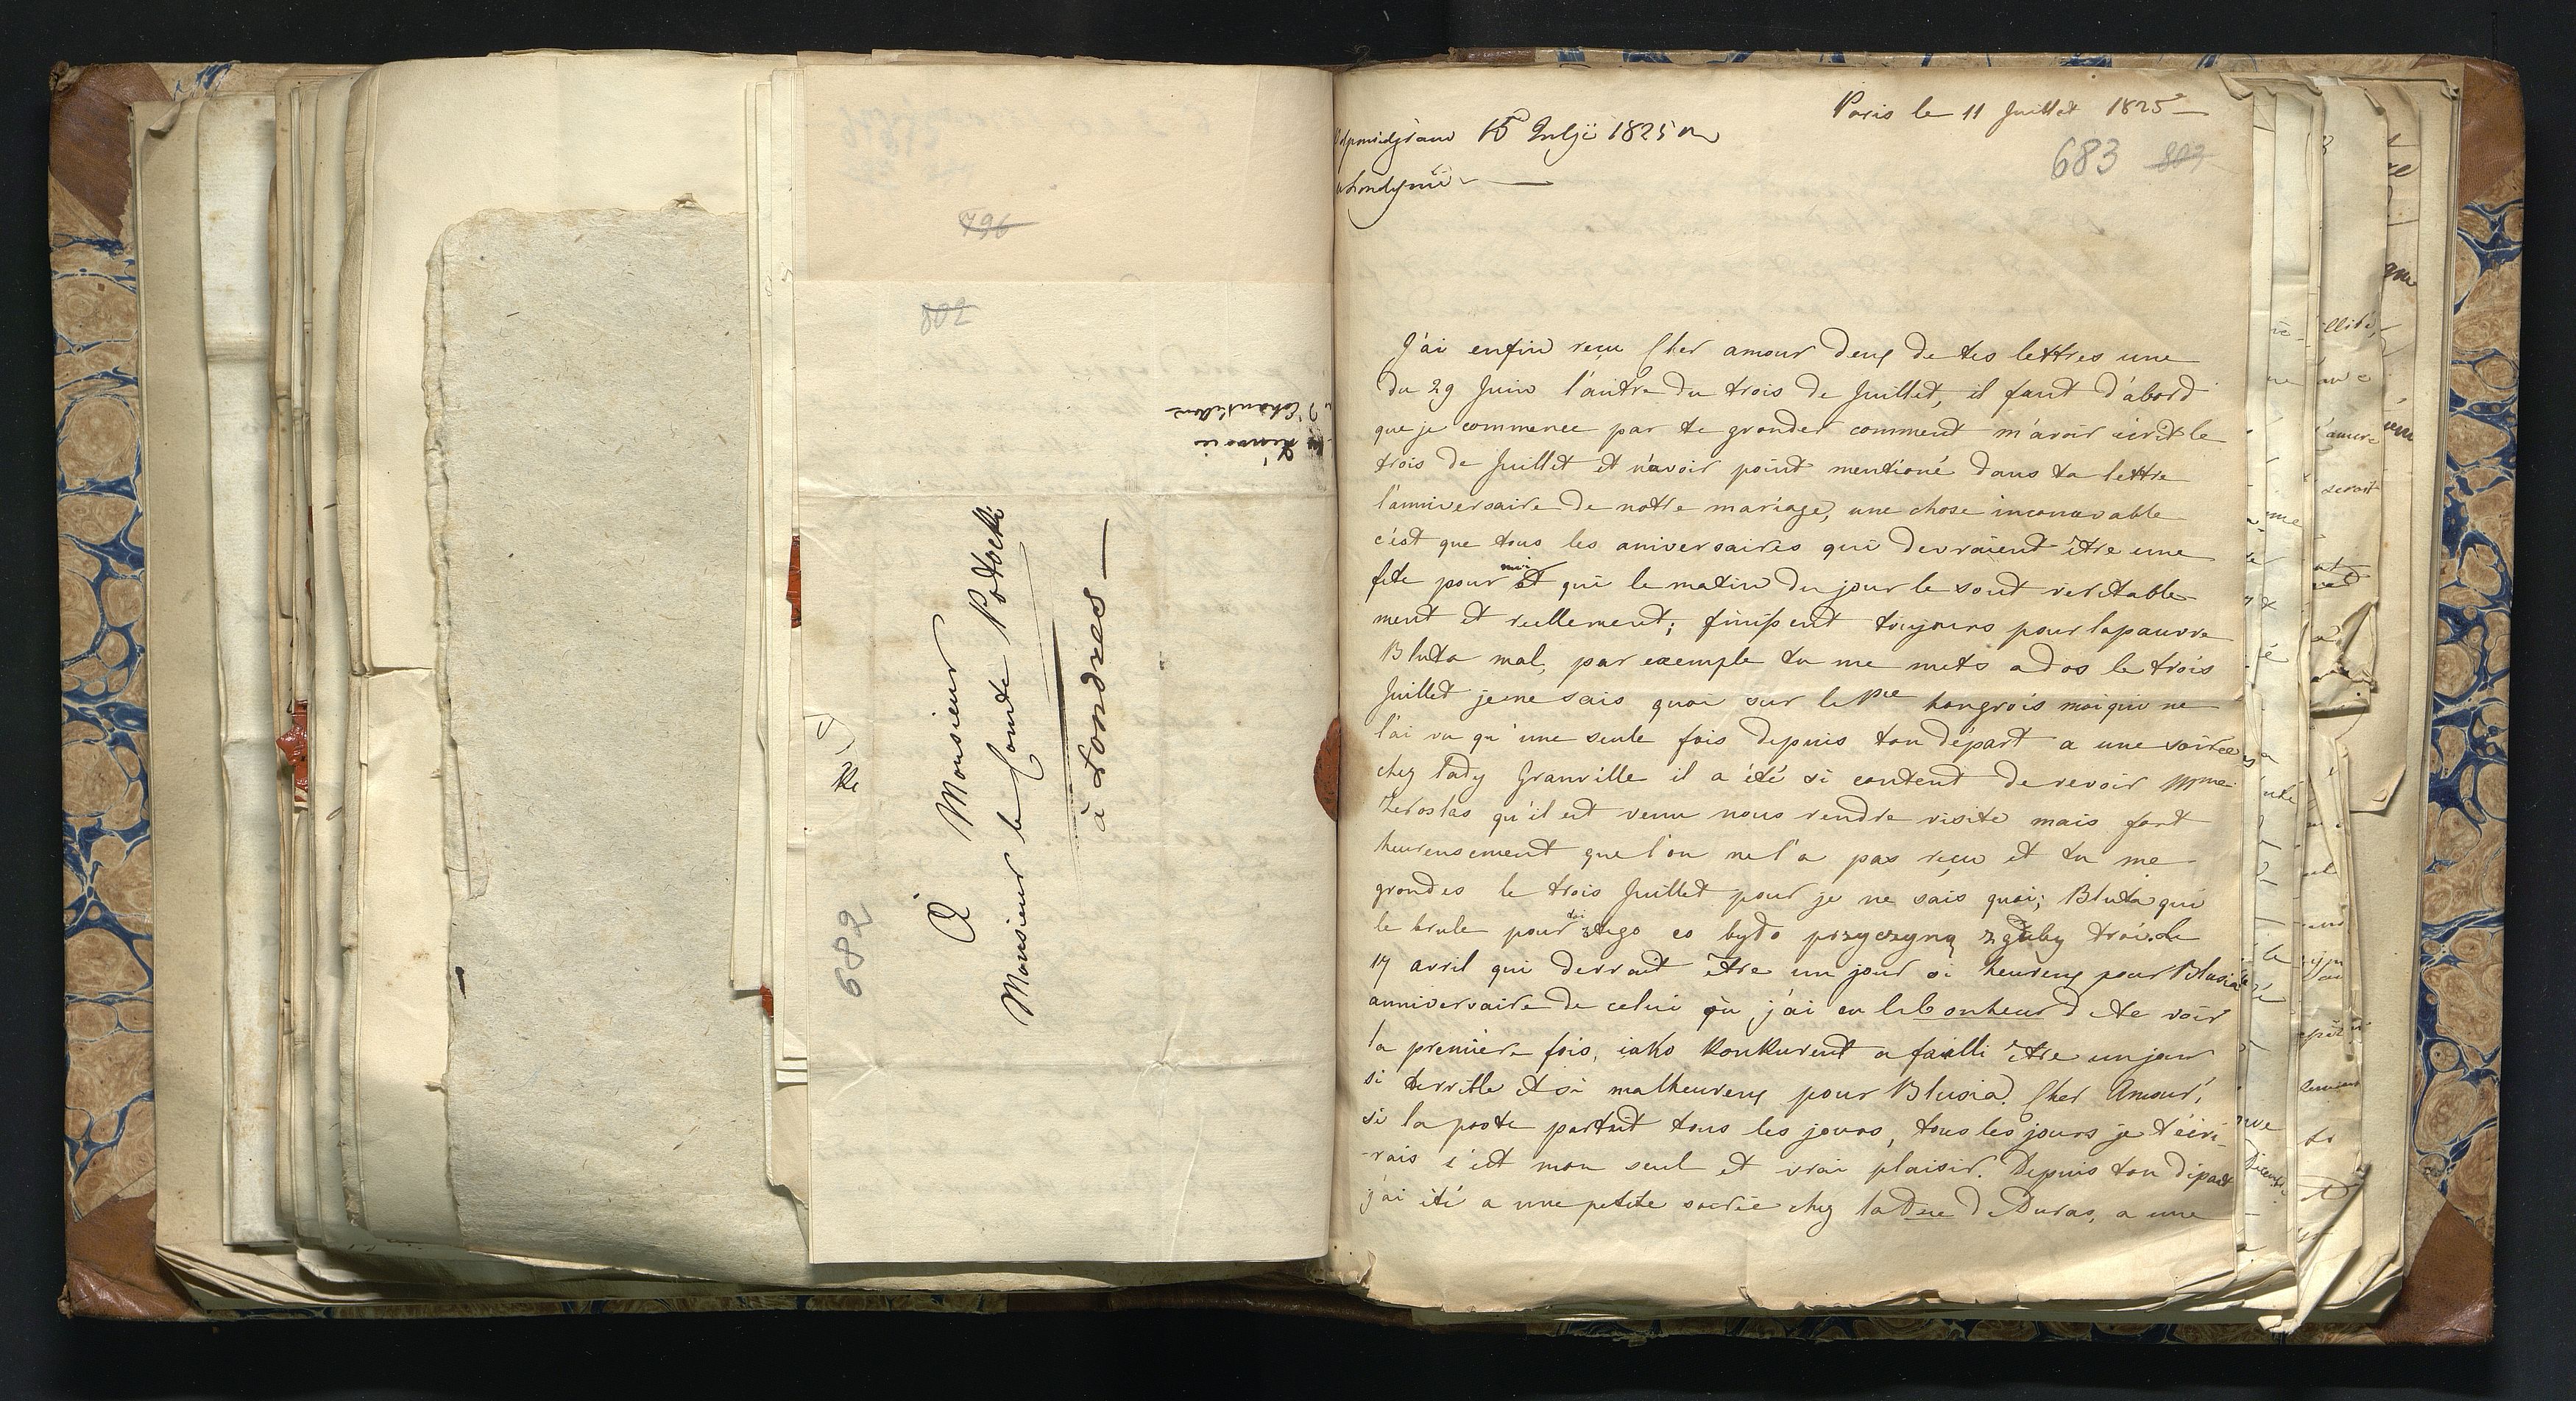 796
802
À Monsieur
Monsieur le Comte Potocki
à Londres —
682
Paris le 11 Juillet 1825 —
Odpowiedziano 15 Julji 1825
w Londynie —
683 803
J'ai enfin reçu Cher amour deux de tes lettres une
du 29 Juin l'autre du trois de Juillet, il faut d'abord
que je commence par te gronder comment m'avoir écrit le
trois de Juillet et n'avoir point mentioné dans ta lettre
l'anniversaire de notre mariage, une chose inconcevable
c'est que tous les aniversaires qui devraient être une
fete pour moi et qui le matin du jour le sont veritable-
ment et reellement; finissent toujours pour la pauvre
Bluta mal, par exemple tu me mets a dos le trois
Juillet je ne sais quoi sur le Pce hongrois moi qui ne
l'ai vu qu'une seule fois depuis ton départ a une soirée
chez Lady Granville il a été si content de revoir Mme
qu'il est venu nous rendre visite mais fort
heureusement que l'on ne l'a pas reçu et tu me
grondes le trois Juillet pour je ne sais quoi; Bluta qui
le brule pour toi co było przyczyną zguby Troi. Le
17 avril qui devrait être un jour si heureux pour Blusia
anniversaire de celui où j'ai eu le bonheur de te voir
la premiere fois, iako Konkurent a failli être un jour
si terrible et si malheureux pour Blusia. Cher Amour,
si la poste partait tous les jours, tous les jours je t'écri-
-rais c'est mon seul et vrai plaisir. Depuis ton départ
j'ai été a une petite soirée chez la Dsse de Duras, a une